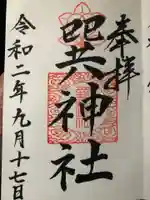 奉拝
巽神社
令和二年九月十七日